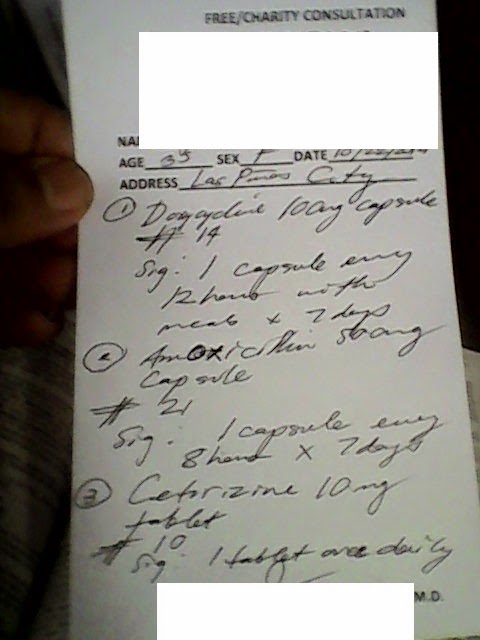 FREE/CHARITY CONSULTATION
AGE 35 SEX F DATE
ADDRESS Las Pinas City
① Doxycycline 100mg capsule
# 14
Sig: 1 capsule every
12 hours with
meals x 7 days
② Amoxicillin 500mg
Capsule
# 21
Sig: 1 capsule every
8 hours x 7 days
③ Cetirizine 10mg
tablet
# 10
Sig: 1 tablet once daily
M.D.